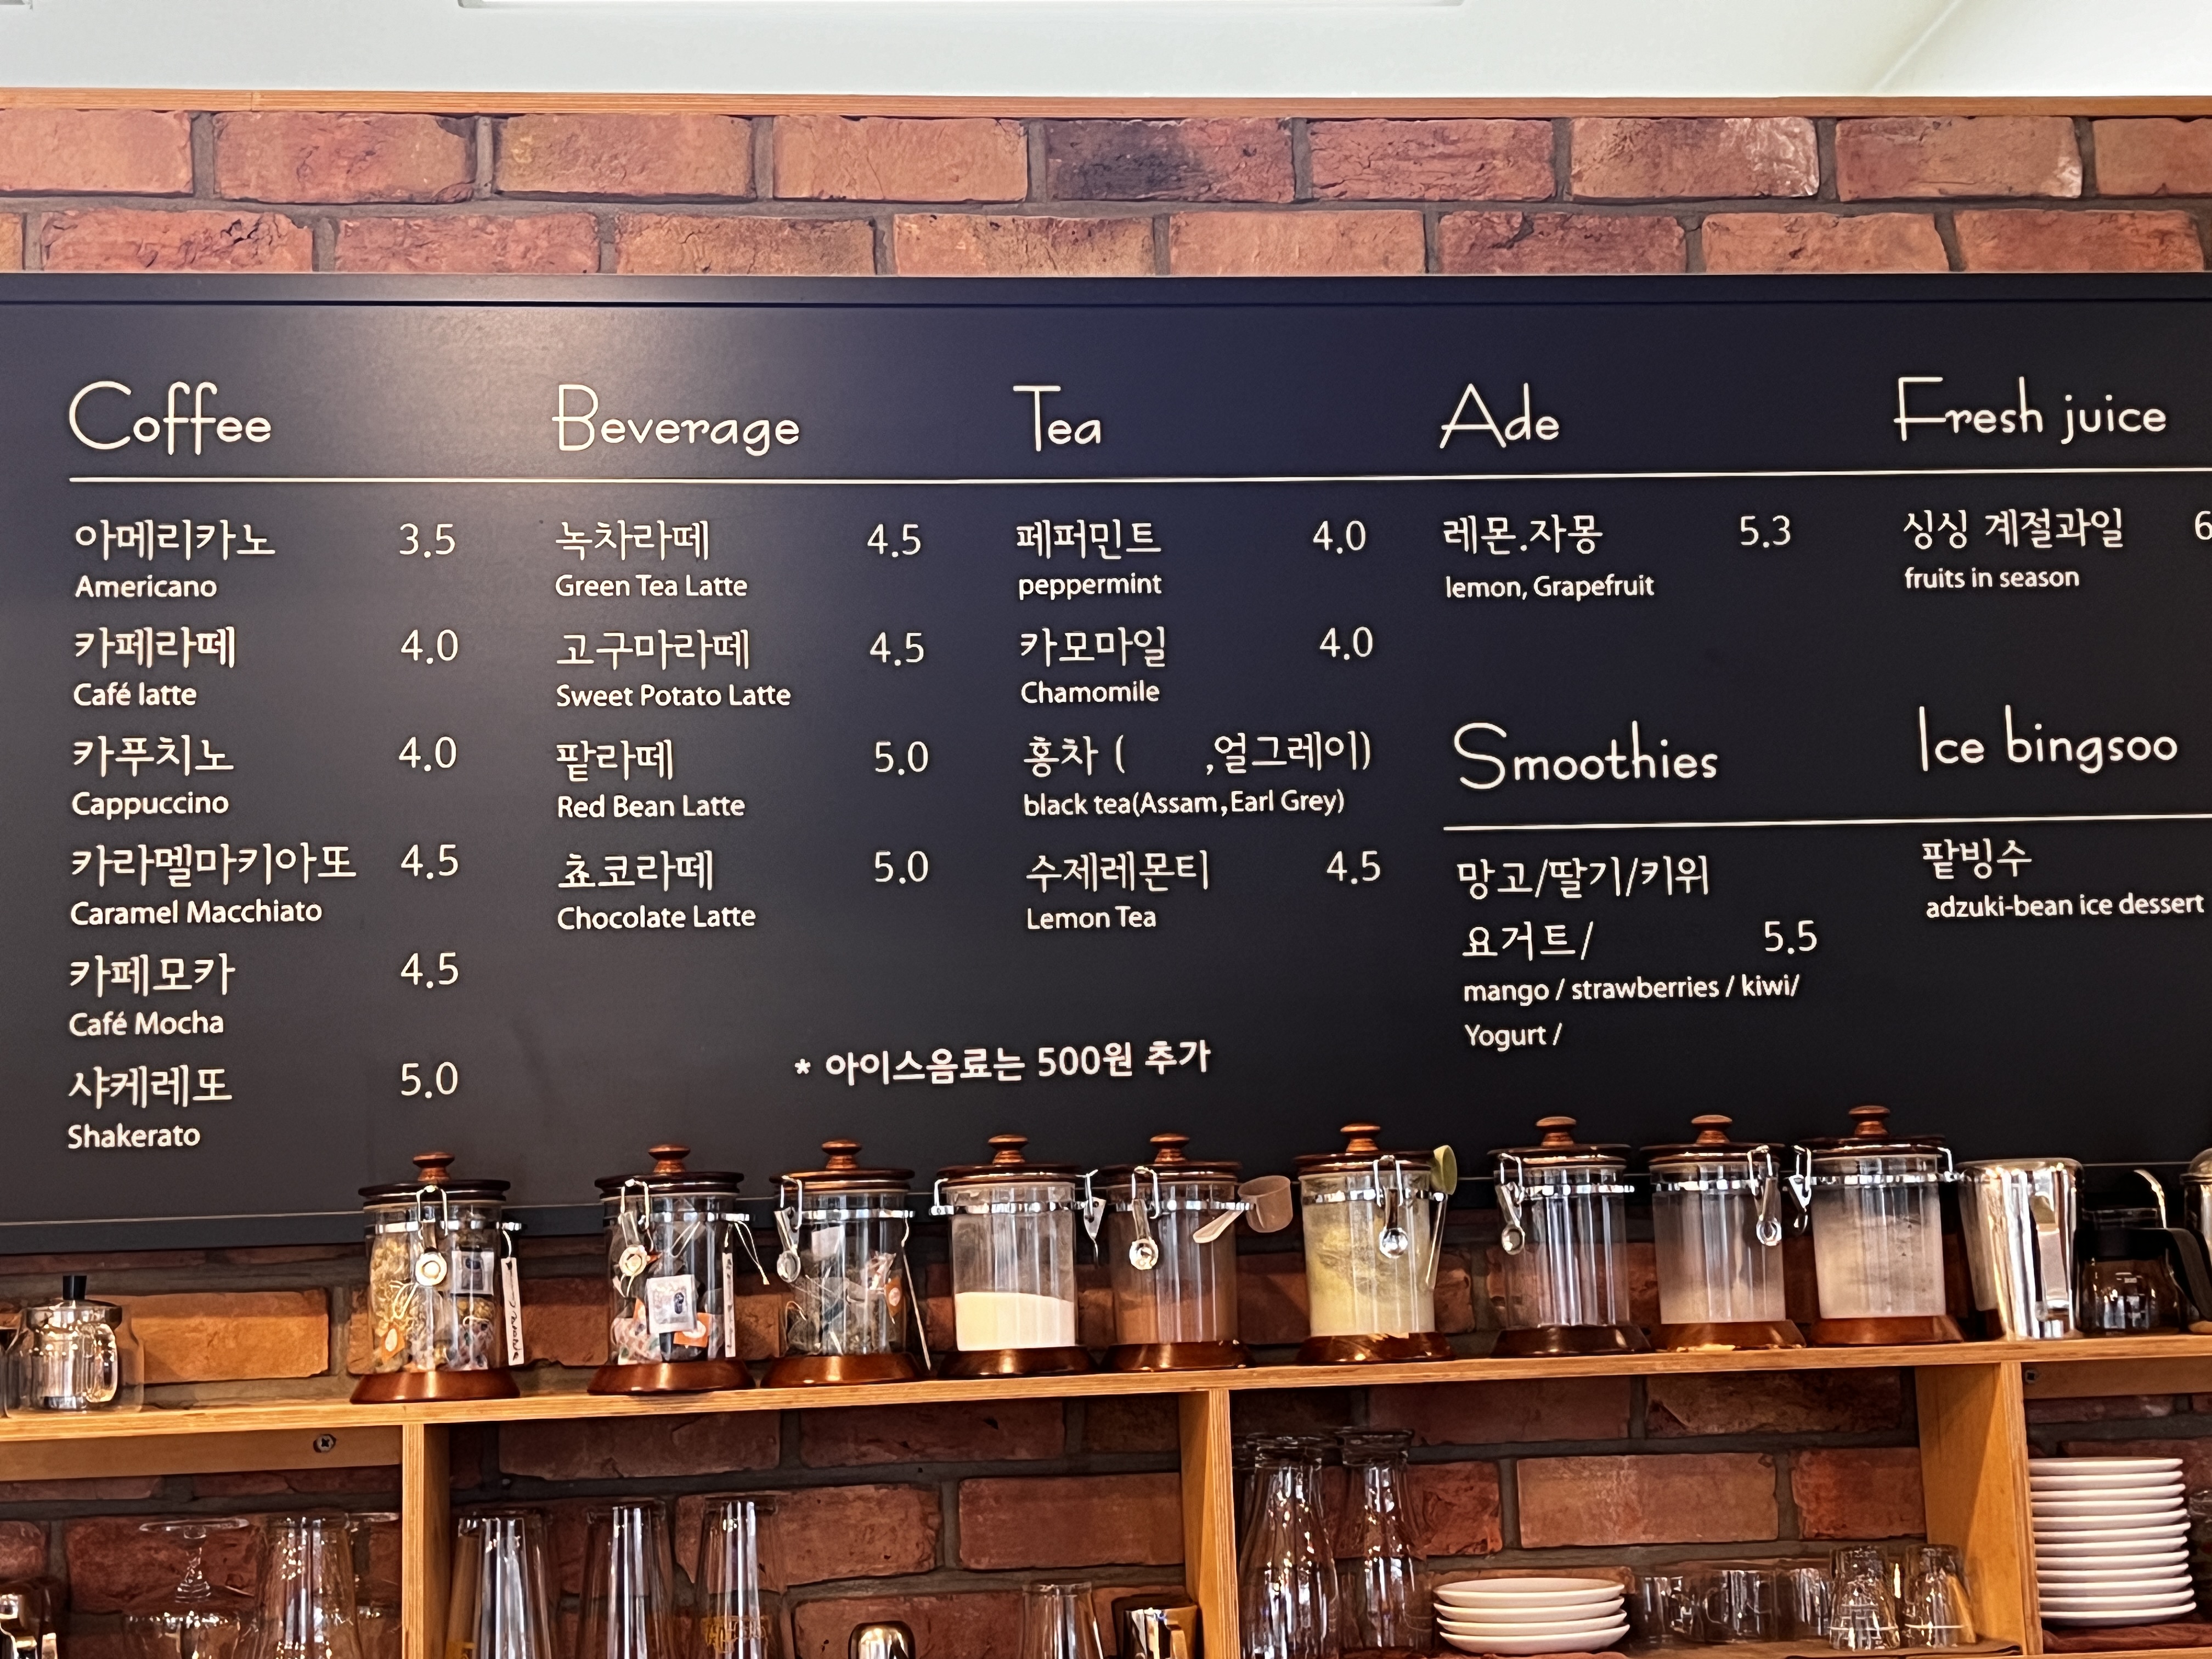 Coffee
아메리카노 3.5
Americano
카페라떼 4.0
Café latte
카푸치노 4.0
Cappuccino
카라멜마키아또 4.5
Caramel Macchiato
카페모카 4.5
Café Mocha
샤케레또 5.0
Shakerato
Beverage
녹차라떼 4.5
Green Tea Latte
고구마라떼 4.5
Sweet Potato Latte
팥라떼 5.0
Red Bean Latte
쵸코라떼 5.0
Chocolate Latte
Tea
페퍼민트 4.0
peppermint
카모마일 4.0
Chamomile
홍차 ( ,얼그레이)
black tea(Assam,Earl Grey)
수제레몬티 4.5
Lemon Tea
* 아이스음료는 500원 추가
Ade
레몬.자몽 5.3
lemon, Grapefruit
Smoothies
망고/딸기/키위
요거트/ 5.5
mango / strawberries / kiwi/
Yogurt /
Fresh juice
싱싱 계절과일 6
fruits in season
Ice bingsoo
팥빙수
adzuki-bean ice dessert